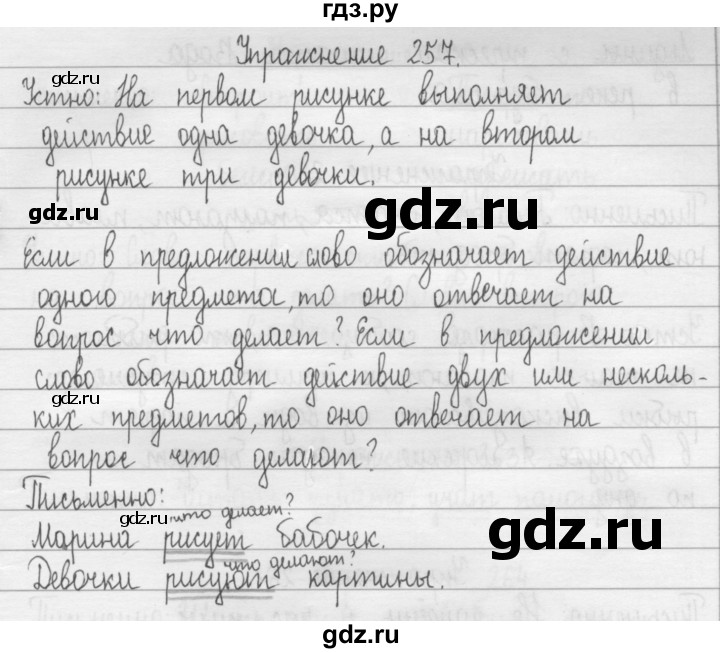 гдз.ру
Упражнение 257.
gdz.ru
Устно: На первом рисунке выполняет
gdz.ru
действие одна девочка, а на втором
рисунке три девочки.
gdz.ru
gdz.ru
Если в предложении слово обозначает действие
одного предмета, то оно отвечает на
вопрос что делает? Если в предложении
слово обозначает действие двух или несколь-
ких предметов, то оно отвечает на
вопрос что делают?
Письменно:
gdz.ru
что делает?
Марина рисует бабочек.
gdz.ru
что делают?
Девочки рисуют картины.
gdz.ru